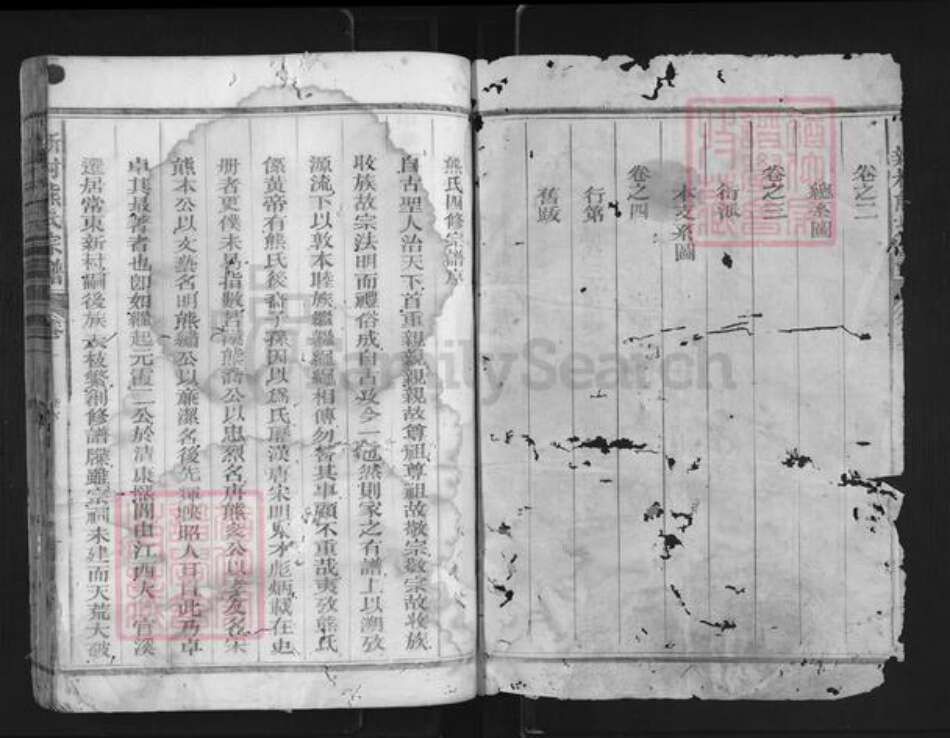 卷之二
總系圖
卷之三
衍派
本支系圖
卷之四
行第
舊跋
熊氏四修宗譜序
自古聖人治天下首重親親親親故尊祖尊祖故敬宗敬宗故收族
收族故宗法明而禮俗成自古及今一也然則家之有譜上以溯攷
源流下以敦本睦族繼繼繩繩相傳勿替其事顧不重哉夷攷熊氏
係黃帝有熊氏後裔子孫因以為氏歷漢唐宋明人才彪炳藏在史
册者更僕未易指數若漢熊喬公以忠烈名唐熊袞公以孝友名宋
熊本公以文藝名明熊繡公以廉潔名後先輝映昭人耳目此乃卓
卓其最著者也卽如繼起元霞二公於清康熙間由江西大官溪
遷居常東新村嗣後族大枝繁創修譜牒雖宗祠未建而天荒大破
新村熊氏宗譜
FamilySearch